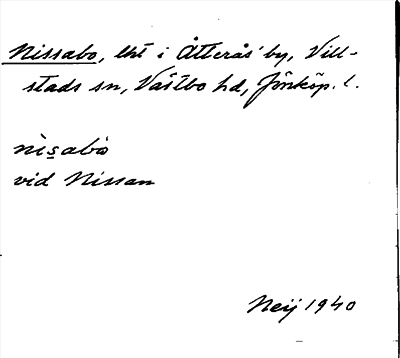 Nissabo, lht i Åtterås by, Vill-
stads sn, Västbo hd, Jönköp. l.
nìs̱abò
vid Nissan
Neij 1940